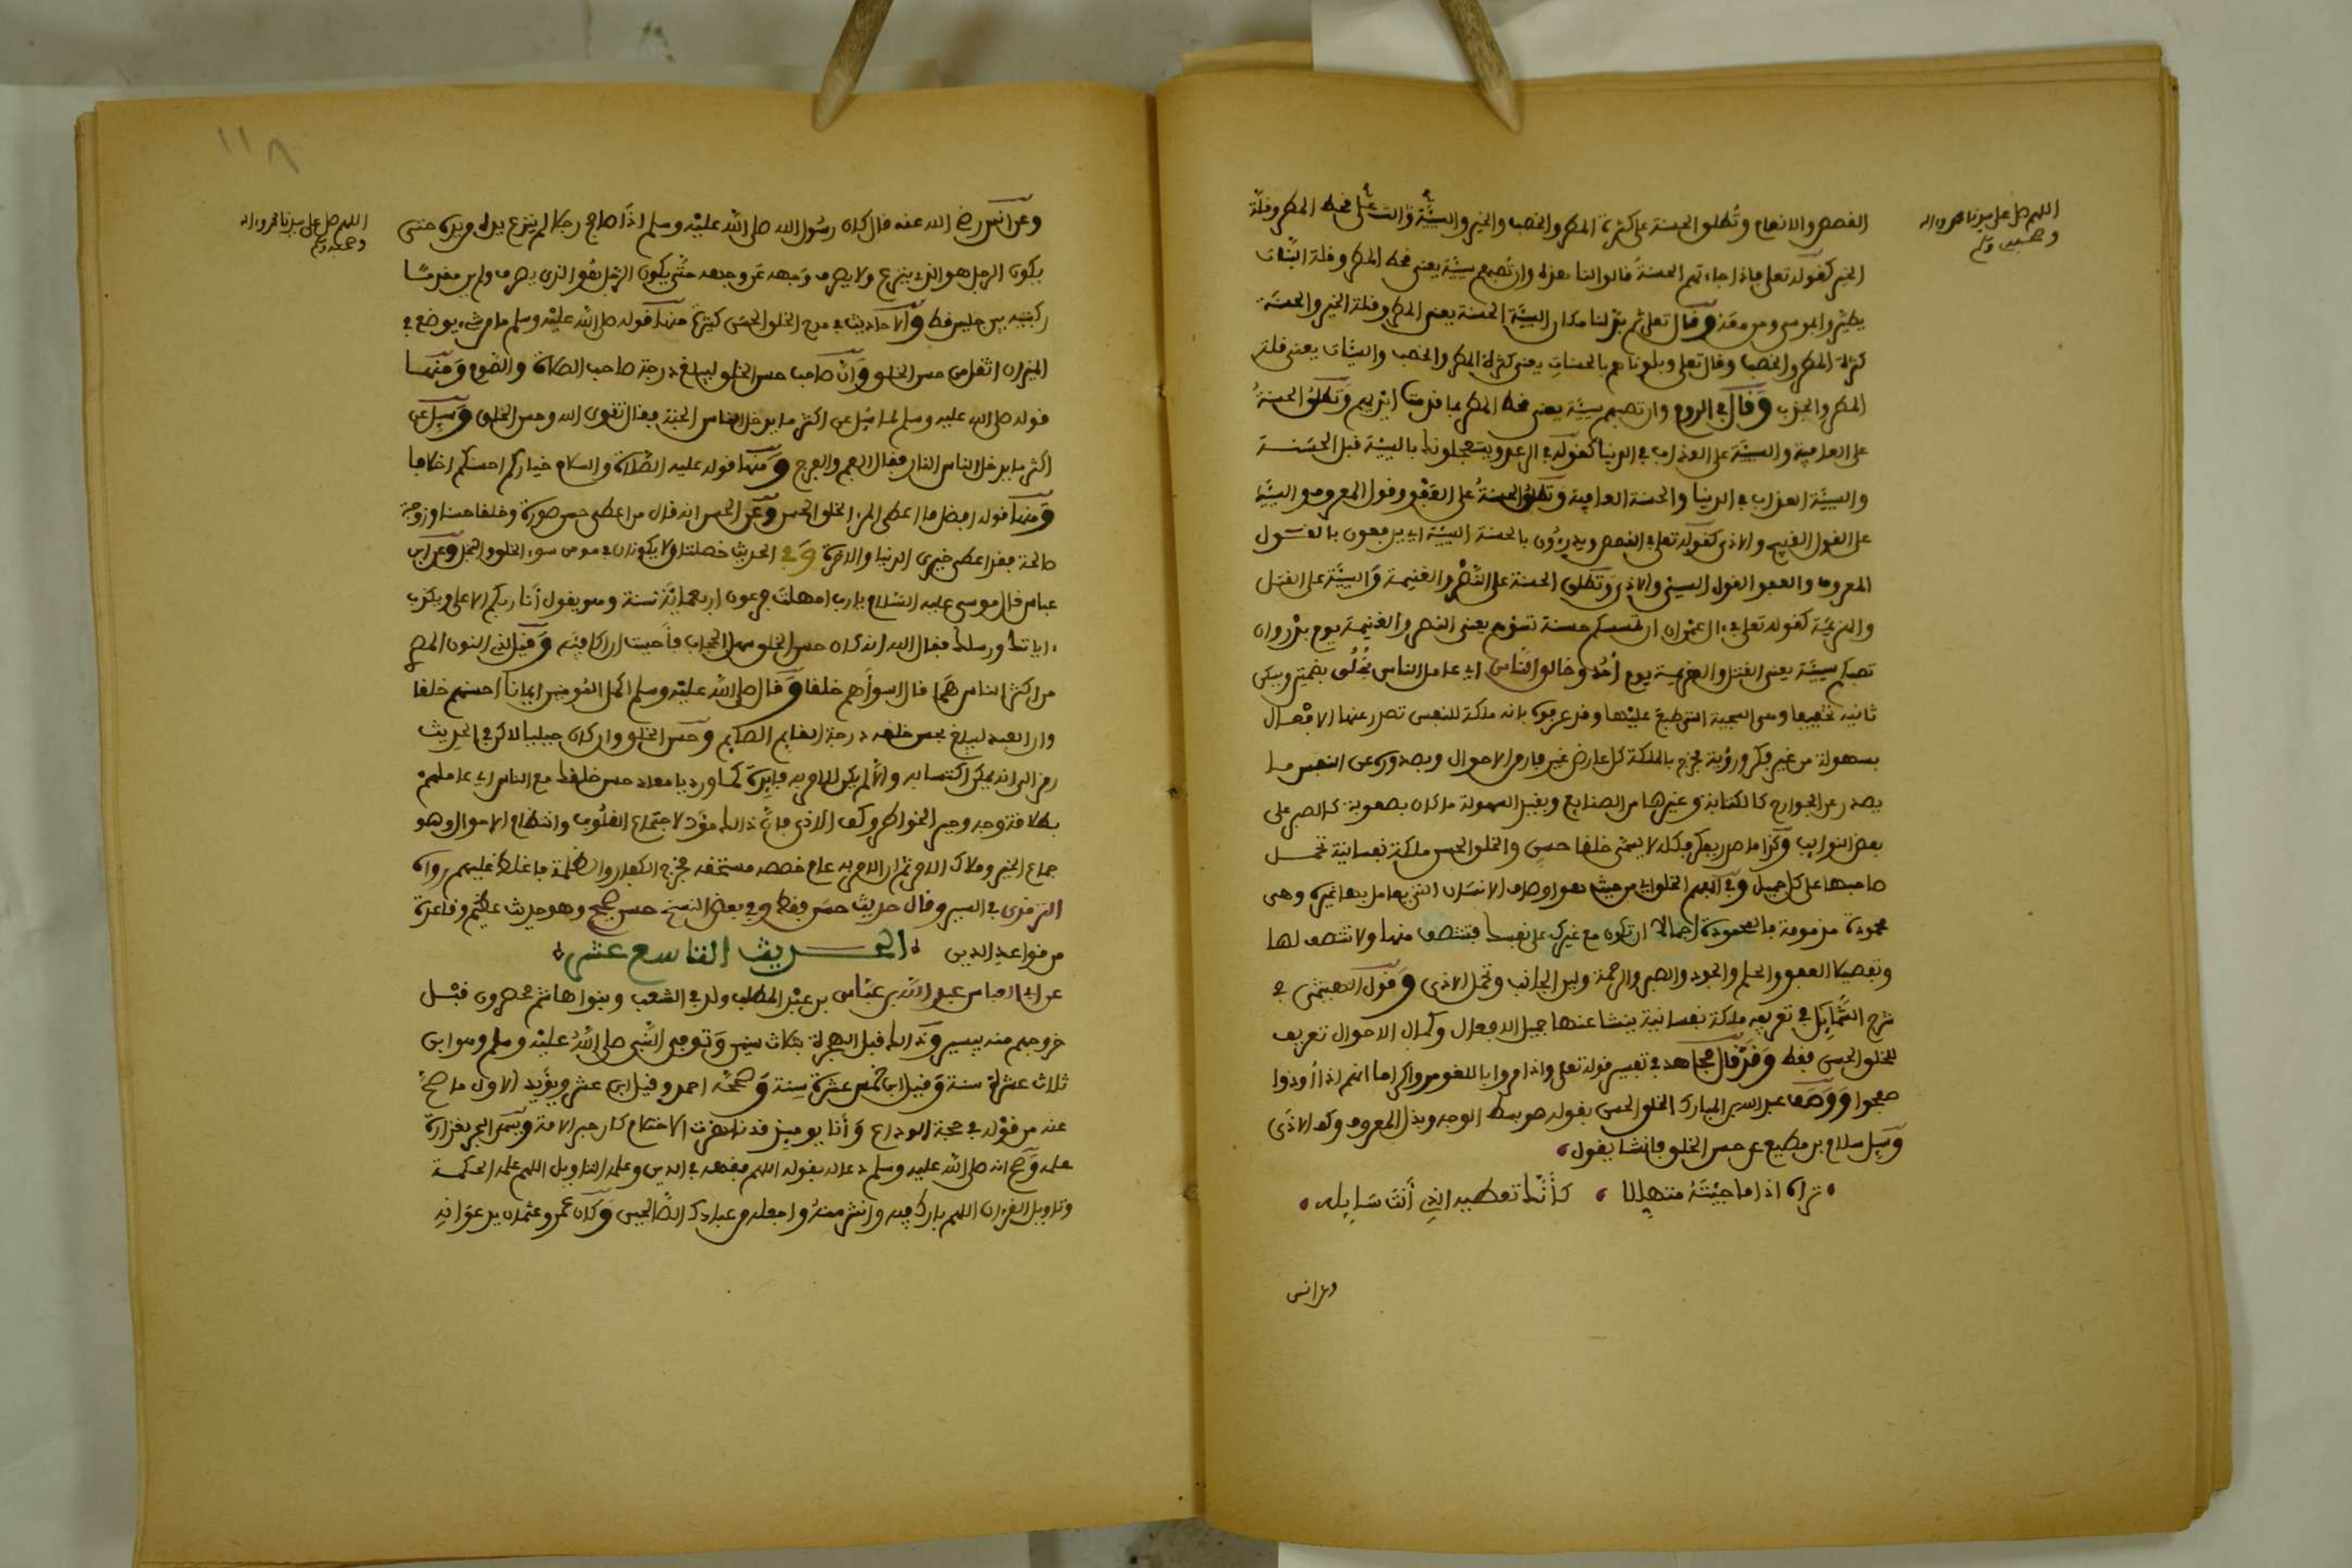 اللهم صل على سيدنا محمد واله
وصحبه وسلم
القصص والانعام وتطلق الحسنة على كثرة المطر والخصب والخير والسيئة على قحط المطر وقلة
الخير كقوله تعلى فاذا جاءتهم الحسنة قالوا لنا هذه وان تصبهم سيئة يعنى قحط المطر وقلة النبات
يطيروا بموسى ومن معه وقال تعلى ثم بدلنا مكان السيئة الحسنة يعنى المطر وقلة الخير والحسنة
كثرة المطر والخصب وقال تعلى وبلوناهم بالحسنات يعنى كثرة المطر والخصب والسيئات يعنى قلة
المطر والجدب وقال في الروم وان تصبهم سيئة يعنى قحط المطر بما قدمت ايديهم وتطلق الحسنة
على العافية والسيئة على العذاب في الدنيا كقوله في الرعد ويستعجلونك بالسيئة قبل الحسنة
والسيئة العذاب في الدنيا والحسنة العافية وتطلق الحسنة على العفو وقول المعروف والسيئة
على القول القبيح والاذى كقوله تعلى في القصص ويدرءون بالحسنة السيئة اي يدفعون بالقول
المعروف والعفو القول السيئ والاذى وتطلق الحسنة على النصر والغنيمة والسيئة على القتل
والهزيمة كقوله تعلى في ال عمران ان تمسسكم حسنة تسؤهم يعنى النصر والغنيمة يوم بدر وان
تصبكم سيئة يعنى القتل والهزيمة يوم أحد وخالق الناس اي عامل الناس بخلق بضمتين ويسكن
ثانيه تخفيفا وهى السجية التى طبع عليها وقد عرفوه بانه ملكة للنفس تصدر عنها الافعال
بسهولة من غير فكر ورؤية فخرج بالملكة كل عارض غير قار من الاحوال وبصدوره عن النفس ما
يصدر عن الجوارح كالكتابة وغيرها من الصنايع وبقيد السهولة ما كان بصعوبة كالصبر على
بعض النوايب وكذا ما صدر بفكر فكله لا يسمى خلقا حسن والخلق الحسن ملكة نفسانية تحمل
صاحبها على كل جميل وفي المفهم الخلق اي من حيث هو اوصاف الانسان التى يعامل بها غيره وهى
محمودة مذمومة فالمحمودة اجمالا ان تكون مع غيرك على نفسك فتنتصف منها ولا تنتصف لها
وتفصيلا العفو والحلم والجود والصبر والرحمة ولين الجانب وتحمل الاذى وقول الهيتمى في
شرح الشمايل في تعريفه ملكة نفسانية ينشا عنها جميل الافعال وكمال الاحوال تعريف
للخلق الحسن فقط وقد قال مجاهد في تفسير قوله تعلى واذا مروا باللغو مروا كراما انهم اذا أوذوا
صفحوا ووصف عبد الله بن المبارك الخلق الحسن بقوله هو بسط الوجه وبذل المعروف وكف الاذى
وسيل سلام بن مطيع عن حسن الخلق فانشا يقول
تراه اذا ما جيئته متهللا كأنك تعطيه الذي أنت سايله
وعن انس
١١٨
اللهم صل على سيدنا محمد واله
وصحبه وسلم
وعن انس رضي الله عنه قال كان رسول الله صلى الله عليه وسلم اذا صافح رجلا لم ينزع يده من يده حتى
يكون الرجل هو الذي ينزع ولا يصرف وجهه عن وجهه حتى يكون الرجل هو الذي يصرف ولم ير مقدما
ركبتيه بين جليس قط والاحاديث في مدح الخلق الحسن كثيرة منها قوله صلى الله عليه وسلم ما من شيء يوضع في
الميزان اثقل من حسن الخلق وان صاحب حسن الخلق ليبلغ درجة صاحب الصلاة والصوم ومنها
قوله صلى الله عليه وسلم لما سئل عن اكثر ما يدخل الناس الجنة فقال تقوى الله وحسن الخلق وسيل عن
اكثر ما يدخل الناس النار فقال الفم والفرج ومنها قوله عليه الصلاة والسلام خياركم احسنكم اخلاقا
ومنها قوله افضل ما اعطى المرء الخلق الحسن وعن الحسن انه قال من اعطى حسن صورة وخلقا حسنا وزوجة
صالحة فقد اعطى خيري الدنيا والاخرة وفي الحديث خصلتان لا يكونان في مومن سوء الخلق والبخل وعن ابن
عباس قال موسى عليه السلام يا رب امهلت فرعون اربعمائة سنة وهو يقول أنا ربكم الاعلى ويكذب
ءاياتك ورسلك فقال الله انه كان حسن الخلق سهل الحجاب فأحببت ان اكافيه وقيل لذي النون المصري
من اكثر الناس هما قال اسوأهم خلقا وقال صلى الله عليه وسلم اكمل المؤمنين ايمانا احسنهم خلقا
وان العبد ليبلغ بحسن خلقه درجة القايم الصايم وحسن الخلق وان كان جبليا لاكن في الحديث
رمز الى انه يمكن اكتسابه والا لم يكن للامر به فايدة كما ورد يا معاذ حسن خلقك مع الناس اي عاملهم
بطلاقة وجه وجبر الخواطر وكف الاذى فان ذالك مؤد لاجتماع القلوب وانتظام الاحوال وهو
جماع الخير وملاك الامر ثم ان الامر به عام خصصه مستحقه فخرج الكفار والظلمة فاغلظ عليهم رواه
الترمذى في السير وقال حديث حسن فقط وفي بعض النسخ حسن صحيح وهو حديث عظيم وقاعدة
من قواعد الدين الحديث التاسع عشر
عن ابي العباس عبد الله بن عباس بن عبد المطلب ولد في الشعب وبنوا هاشم محصرون قبل
خروجهم منه بيسير وذالك قبل الهجرة بثلاث سنين وتوفى النبي صلى الله عليه وسلم وهو ابن
ثلاث عشرة سنة وقيل ابن خمس عشرة سنة وصححه احمد وقيل ابن عشر ويؤيد الاول ما صح
عنه من قوله في حجة الوداع وأنا يوميذ قد ناهزت الاحتلام كان حبر الامة ويسمى البحر لغزارة
علمه وصح انه صلى الله عليه وسلم دعا له بقوله اللهم فقهه في الدين وعلمه التاويل اللهم علمه الحكمة
وتاويل القرءان اللهم بارك فيه وانشر منه واجعله من عبادك الصالحين وكان عمر وعثمان يدعوانه